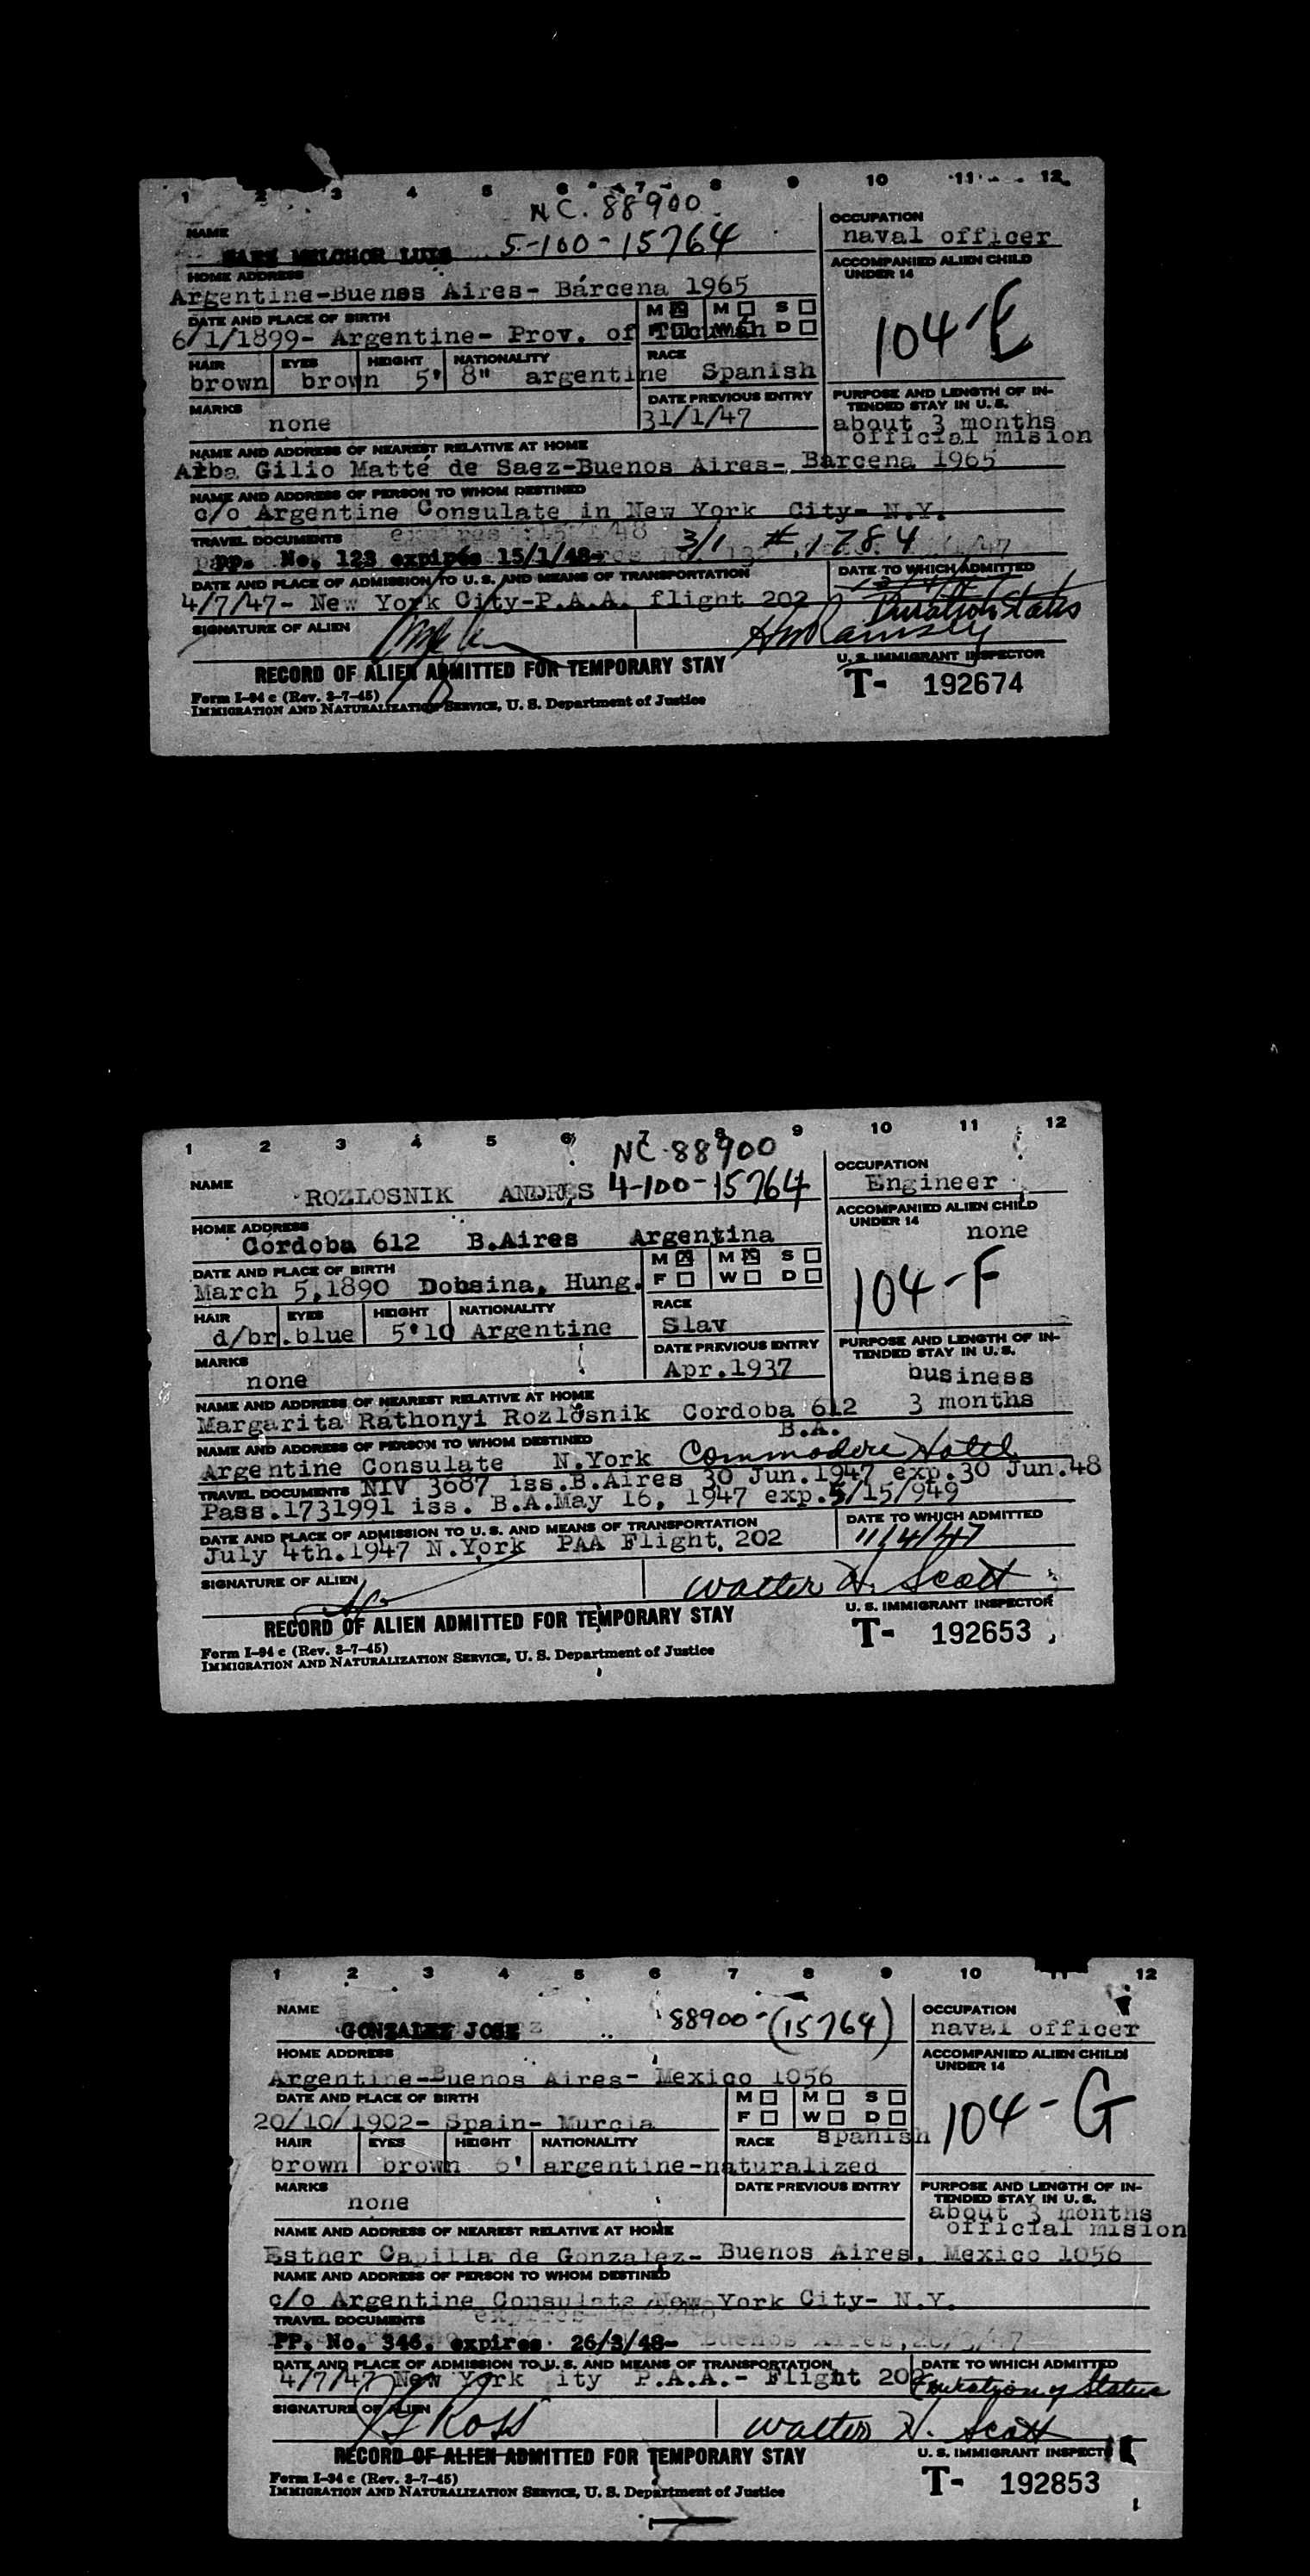 1 2 3 4 5 6 7 8 9 10 11 12
NC. 88900
NAME MELCHOR LUIS 5-100-15764
OCCUPATION
naval officer
HOME ADDRESS
Argentine-Buenos Aires- Bárcena 1965
ACCOMPANIED ALIEN CHILD
UNDER 14
104-E
DATE AND PLACE OF BIRTH M M S
6/1/1899- Argentine- Prov. of Tucumán F W D
HAIR EYES HEIGHT NATIONALITY RACE
brown brown 5' 8" argentine Spanish
MARKS
none
DATE PREVIOUS ENTRY
31/1/47
PURPOSE AND LENGTH OF IN-
TENDED STAY IN U. S.
about 3 months
official mision
NAME AND ADDRESS OF NEAREST RELATIVE AT HOME
Alba Gilio Matté de Saez-Buenos Aires- Bárcena 1965
NAME AND ADDRESS OF PERSON TO WHOM DESTINED
c/o Argentine Consulate in New York City- N.Y.
TRAVEL DOCUMENTS 3/1 #1784
PP. No. 123 expires 15/1/48-
DATE AND PLACE OF ADMISSION TO U. S. AND MEANS OF TRANSPORTATION
4/7/47- New York City-P.A.A. flight 202
DATE TO WHICH ADMITTED
Duration Status
SIGNATURE OF ALIEN
HM Ramsey
U. S. IMMIGRANT INSPECTOR
RECORD OF ALIEN ADMITTED FOR TEMPORARY STAY
T- 192674
Form I-94 c (Rev. 3-7-45)
IMMIGRATION AND NATURALIZATION SERVICE, U. S. Department of Justice
1 2 3 4 5 6 7 8 9 10 11 12
NC. 88900
NAME ROZLOSNIK ANDRES 4-100-15764
OCCUPATION
Engineer
HOME ADDRESS
Córdoba 612 B.Aires Argentina
ACCOMPANIED ALIEN CHILD
UNDER 14
none
104-F
DATE AND PLACE OF BIRTH M M S
March 5,1890 Dobsina, Hung. F W D
HAIR EYES HEIGHT NATIONALITY RACE
d/br. blue 5'10 Argentine Slav
MARKS
none
DATE PREVIOUS ENTRY
Apr.1937
PURPOSE AND LENGTH OF IN-
TENDED STAY IN U. S.
business
3 months
NAME AND ADDRESS OF NEAREST RELATIVE AT HOME
Margarita Ráthonyi Rozlosnik Cordoba 612
B.A.
NAME AND ADDRESS OF PERSON TO WHOM DESTINED
Argentine Consulate N.York Commodore Hotel
TRAVEL DOCUMENTS NIV 3687 iss.B.Aires 30 Jun.1947 exp.30 Jun.48
Pass.1731991 iss. B.A.May 16, 1947 exp.5/15/949
DATE AND PLACE OF ADMISSION TO U. S. AND MEANS OF TRANSPORTATION
July 4th.1947 N.York PAA Flight, 202
DATE TO WHICH ADMITTED
11/4/47
SIGNATURE OF ALIEN
Walter H. Scott
U. S. IMMIGRANT INSPECTOR
RECORD OF ALIEN ADMITTED FOR TEMPORARY STAY
T- 192653
Form I-94 c (Rev. 3-7-45)
IMMIGRATION AND NATURALIZATION SERVICE, U. S. Department of Justice
1 2 3 4 5 6 7 8 9 10 11 12
NAME GONZALEZ JOSE 88900-(15764)
OCCUPATION
naval officer
HOME ADDRESS
Argentine-Buenos Aires- Mexico 1056
ACCOMPANIED ALIEN CHILD
UNDER 14
104-G
DATE AND PLACE OF BIRTH M M S
20/10/1902- Spain- Murcia F W D
HAIR EYES HEIGHT NATIONALITY RACE spanish
brown brown 6' argentine-naturalized
MARKS
none
DATE PREVIOUS ENTRY
PURPOSE AND LENGTH OF IN-
TENDED STAY IN U. S.
about 3 months
official mision
NAME AND ADDRESS OF NEAREST RELATIVE AT HOME
Esther Capilla de Gonzalez- Buenos Aires, Mexico 1056
NAME AND ADDRESS OF PERSON TO WHOM DESTINED
c/o Argentine Consulate New York City- N.Y.
TRAVEL DOCUMENTS
PP. No. 346. expires 26/3/48-
DATE AND PLACE OF ADMISSION TO U. S. AND MEANS OF TRANSPORTATION
4/7/47 New York ity P.A.A.- Flight 202
DATE TO WHICH ADMITTED
Duration of Status
SIGNATURE OF ALIEN
Walter H. Scott
U. S. IMMIGRANT INSPECT
RECORD OF ALIEN ADMITTED FOR TEMPORARY STAY
T- 192853
Form I-94 c (Rev. 3-7-45)
IMMIGRATION AND NATURALIZATION SERVICE, U. S. Department of Justice